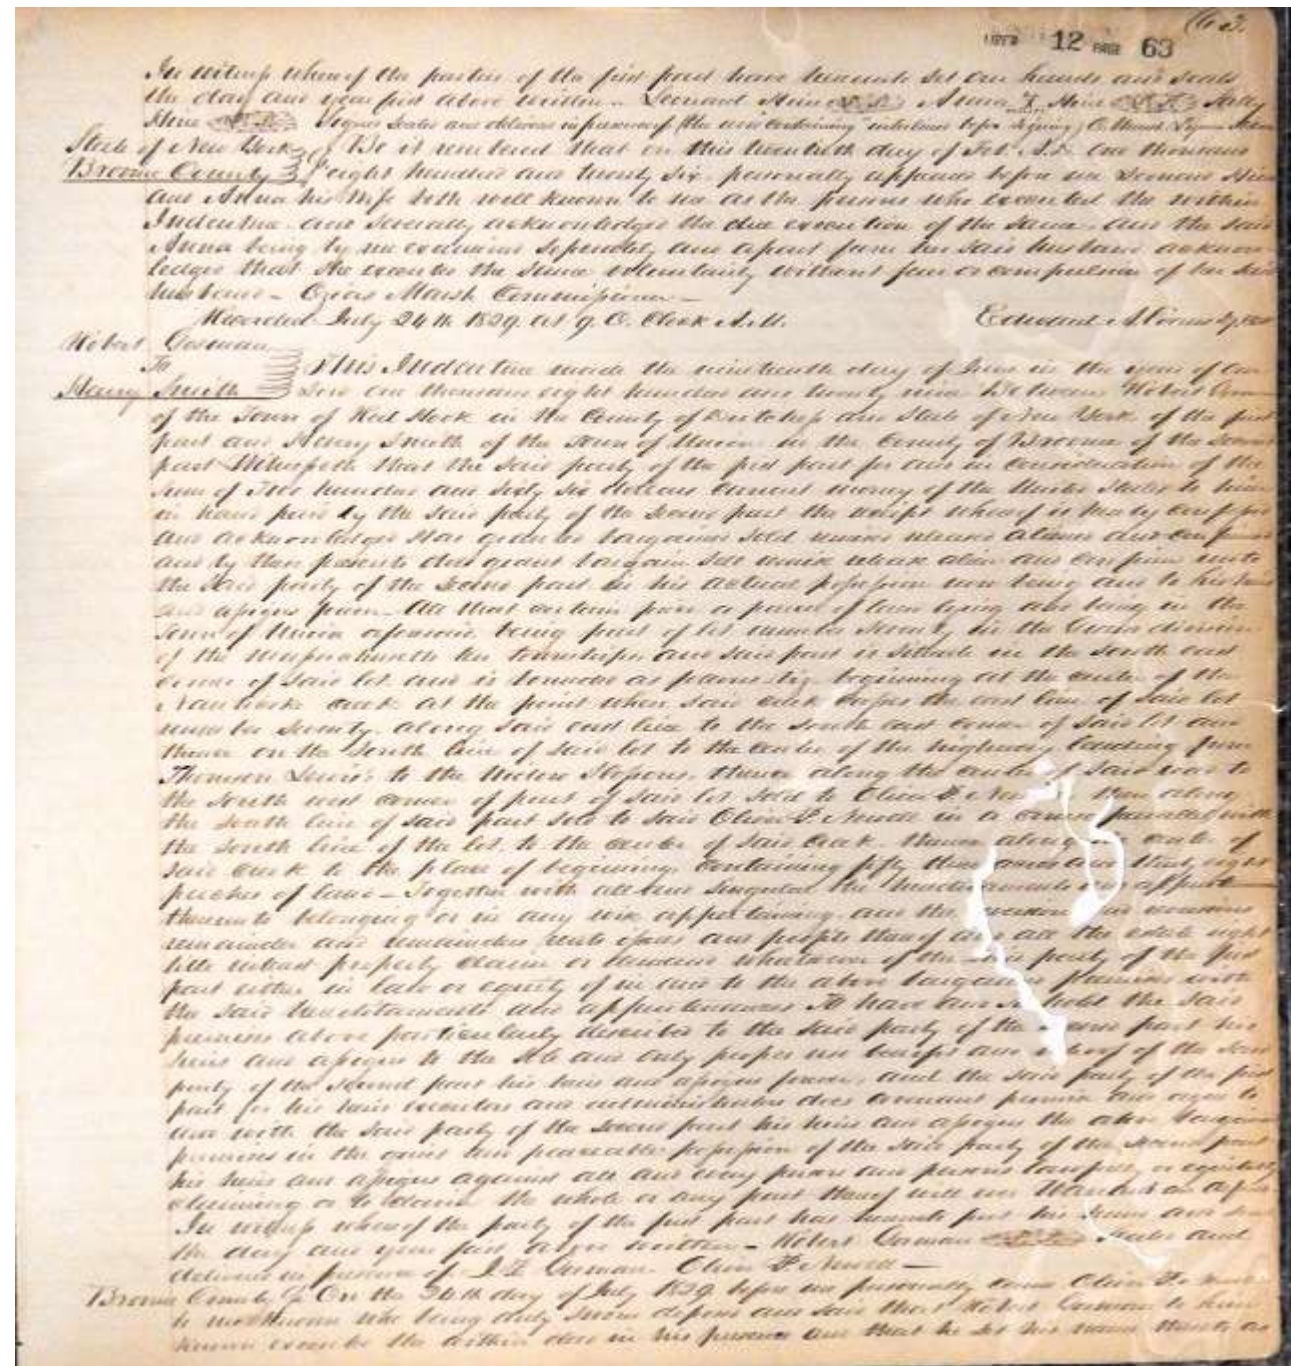 63.
LIBER 12 PAGE 63
In witness whereof the parties of the first part have hereunto set our hands and seals
the day and year first above written - Leonard Hine L.S. Anna Hine L.S.
Hine L.S. Signed Sealed and delivered in presence of
State of New York } Be it remembered that on this twentieth day of Feb. A.D. one thousand
Broome County } eight hundred and twenty six personally appeared before me Leonard Hine
and Anna his wife both well known to me as the persons who executed the within
Indenture and severally acknowledged the due execution of the same. And the said
Anna being by me examined seperately and apart from her said husband acknow
ledged that she executed the same voluntarily without fear or compulsion of her said
husband - Marsh Commissioner -
Recorded July 24th 1829 at 9. O. Clock A.M. Edward
Robert
To } This Indenture made the nineteenth day of June in the year of our
Henry Smith } Lord one thousand eight hundred and twenty nine Between Robert
of the Town of Red Hook in the County of Dutchess and State of New York of the first
part and Henry Smith of the Town of Union in the County of Broome of the second
part Witnesseth that the said party of the first part for and in consideration of the
sum of Two hundred and sixty six dollars current money of the United States to him
in hand paid by the said party of the second part the receipt whereof is hereby confessed
and acknowledged Has granted bargained sold remised released aliened and confirmed
and by these presents does grant bargain sell remise release alien and confirm unto
the said party of the second part in his actual possession now being and to his heirs
and assigns forever All that certain piece or parcel of land lying and being in the
Town of Union aforesaid being part of lot number seventy in the division
of the ten townships and said part is situate in the south east
corner of said lot and is bounded as follows viz beginning at the center of the
Nanticoke creek at the point where said creek crosses the east line of said lot
number seventy along said east line to the south east corner of said lot and
thence on the south line of said lot to the center of the highway leading from
Thomson Lewis's to the Widow thence along the center of said road to
the south west corner of part of said lot sold to Oliver thence along
the south line of said part sold to said Oliver in a course parallel with
the south line of the lot to the center of said creek thence along center of
said creek to the place of beginning containing fifty three acres and thirty eight
perches of land - Together with all and singular the hereditaments and appurt
thereunto belonging or in any wise appertaining and the reversion and reversions
remainder and remainders rents issues and profits thereof and all the estate right
title interest property claim or demand whatsoever of the said party of the first
part either in law or equity of in and to the above bargained premises with
the said hereditaments and appurtenances To have and to hold the said
premises above particularly described to the said party of the second part his
heirs and assigns to the sole and only proper use benefit and behoof of the said
party of the second part his heirs and assigns forever, and the said party of the first
part for his heirs executors and administrators does covenant promise and agree to
and with the said party of the second part his heirs and assigns the above bargained
premises in the quiet and peaceable possession of the said party of the second part
his heirs and assigns against all and every person and persons lawfully or equitably
claiming or to claim the whole or any part thereof will ever Warrant and defend
In witness whereof the party of the first part has hereunto set his hand and seal
the day and year first above written - Robert L.S. Sealed and
delivered in presence of Oliver
Broome County On the 24th day of July 1829 before me personally came Oliver
to me known who being duly sworn deposes and said that Robert to him
known executed the within deed in his presence and that he set his name thereto as